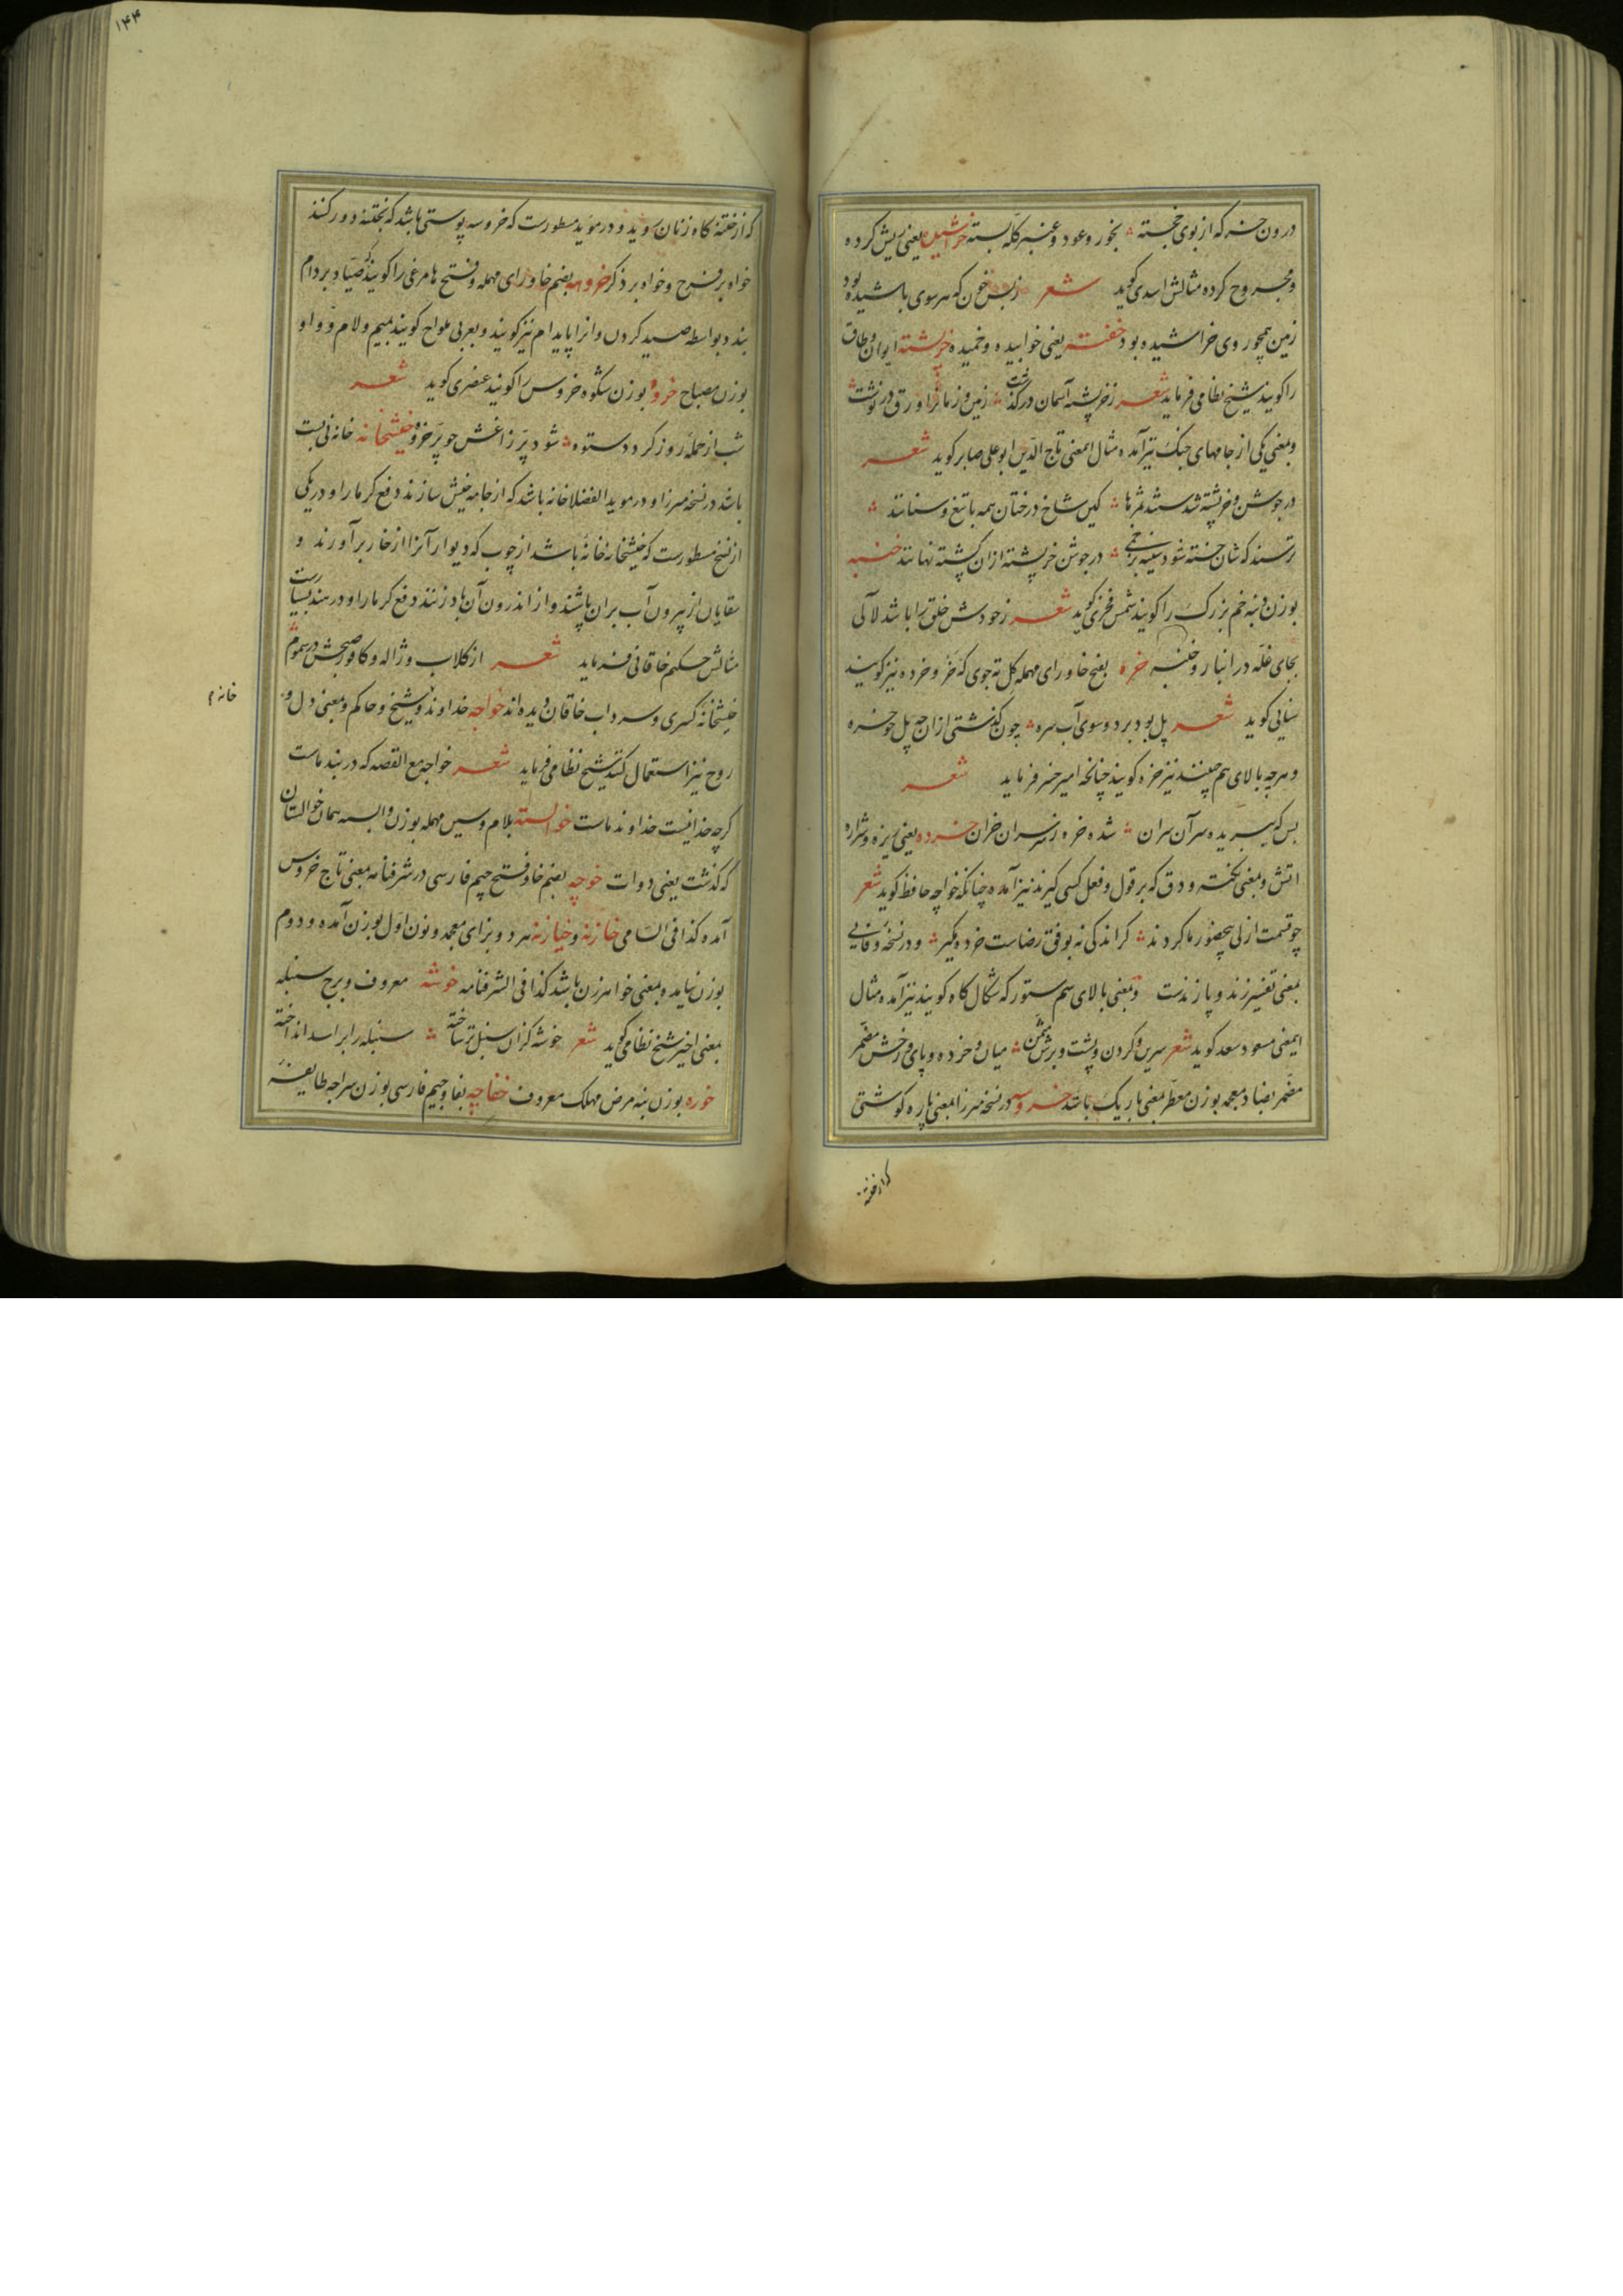 درون خنبه که از بوی خجسته ؞ بخور و عود و عنبر کله بسته خراشیده یعنی ریش کرده
و مجروح کرده مثالش اسدی کوید شعر ز بس خون که هر سوی پاشیده بود
زمین همچو روی خراشیده بود خفته یعنی خوابیده و خمیده خرپشته ایوان و طاق
را کویند شیخ نظامی فرماید شعر ز خرپشته آسمان در کذشت ؞ زمین و زمانرا ورق در نوشت
و بمعنی یکی از جامهای جنک نیز آمده مثال اینمعنی تاج الدین ابو علی صابر کوید شعر
در جوشن و خرپشته شدستند ثمرها ؞ کین شاخ درختان همه با تیغ و سنانند ؞
ترسند که شان خسته شود سینه ؞ در جوشن خرپشته ازان کشته نهانند خنبه
بوزن دنبه خم بزرک را کویند شمس فخری کوید شعر ز خودش خلق را باشد لآلی
بجای غله در انبار و خنبه خره بفتح خا و رای مهمله کل ته جوی که خر و خرده نیز کویند
سنایی کوید شعر پل بود بر دو سوی آب سره ؞ چون کذشتی ازان چه پل چو خره
و هر چه بالای هم چینند نیز خره کویند چنانچه امیر خسرو فرماید شعر
بس که ببریده سر آن سران ؞ شده خره ز سران خران خرده یعنی ریزه و شراره
اتش و بمعنی نکته و دق که بر قول و فعل کسی کیرند نیز آمده چنانکه خواجه حافظ کوید شعر
چو قسمت ازلی بیحضور ما کردند ؞ کر اندکی نه بوفق رضاست خرده مکیر ؞ و در نسخه وفایی
بمعنی تفسیر زند و پازندست و بمعنی بالای سم ستور که شکال کاه کویند نیز آمده مثال
اینمعنی مسعود سعد کوید شعر سرین و کردن و پشت و برش مسمن ؞ میان و خرده و پای و رخش مضمر
مضمر بضاد معجمه بوزن معطر بمعنی باریک باشد خروسه در نسخه میرزا بمعنی پاره کوشتی
که از ختنه
۱۴۴
که از ختنه کاه زنان روید و در موید مسطورست که خروسه پوستی باشد که بختنه دور کنند
خواه بر فرج و خواه بر ذکر خروهه بضم خا و رای مهمله و فتح ها مرغی را کویند که صیاد بر دام
بندد بواسطه صید کردن و انرا پایدام نیز کویند و بعربی ملواح کویند بمیم و لام و واو
بوزن مصباح خروه بوزن شکوه خروس را کویند عنصری کوید شعر
شب از حمله روز کردد ستوه ؞ شود پر زاغش چو پر خروه خیشخانه خانه نی بست
باشد در نسخه میرزا و در موید الفضلا خانه باشد که از جامه خیش سازند دفع کرما را و در یکی
از نسخ مسطورست که خیشخانه خانهٔ باشد از چوب که دیوار آنرا از خار بر آورند و
سقایان از بیرون آب بران پاشند و از اندرون آن باد زنند دفع کرما را و در هند بسیارست
مثالش حکیم خاقانی فرماید شعر از کلاب و ژاله و کافور صبحش در سموم
خیشخانه کسری و سرداب خاقان دیده اند خواجه خداوند و شیخ و حاکم و بمعنی دل و
خانه م
روح نیز استعمال کنند شیخ نظامی فرماید شعر خواجه مع القصه که در بند ماست
کرچه خدا نیست خداوند ماست خوالسته بلام و سین مهمله بوزن وابسته همان خوالستان
که کذشت یعنی دوات خوچه بضم خا و فتح جیم فارسی در شرفنامه بمعنی تاج خروس
آمده کذا فی السامی خازنه و خیازنه هر دو بزای معجمه و نون اول بوزن آمده و دوم
بوزن نیایده بمعنی خواهر زن باشد کذا فی الشرفنامه خوشه معروف و برج سنبله
بمعنی اخیر شیخ نظامی کوید شعر خوشه کزان سنبل تر ساخته ؞ سنبله را بر اسد انداخته
خوره بوزن بنه مرض مهلک معروف خفاچه بفا و جیم فارسی بوزن سراجه طایفه